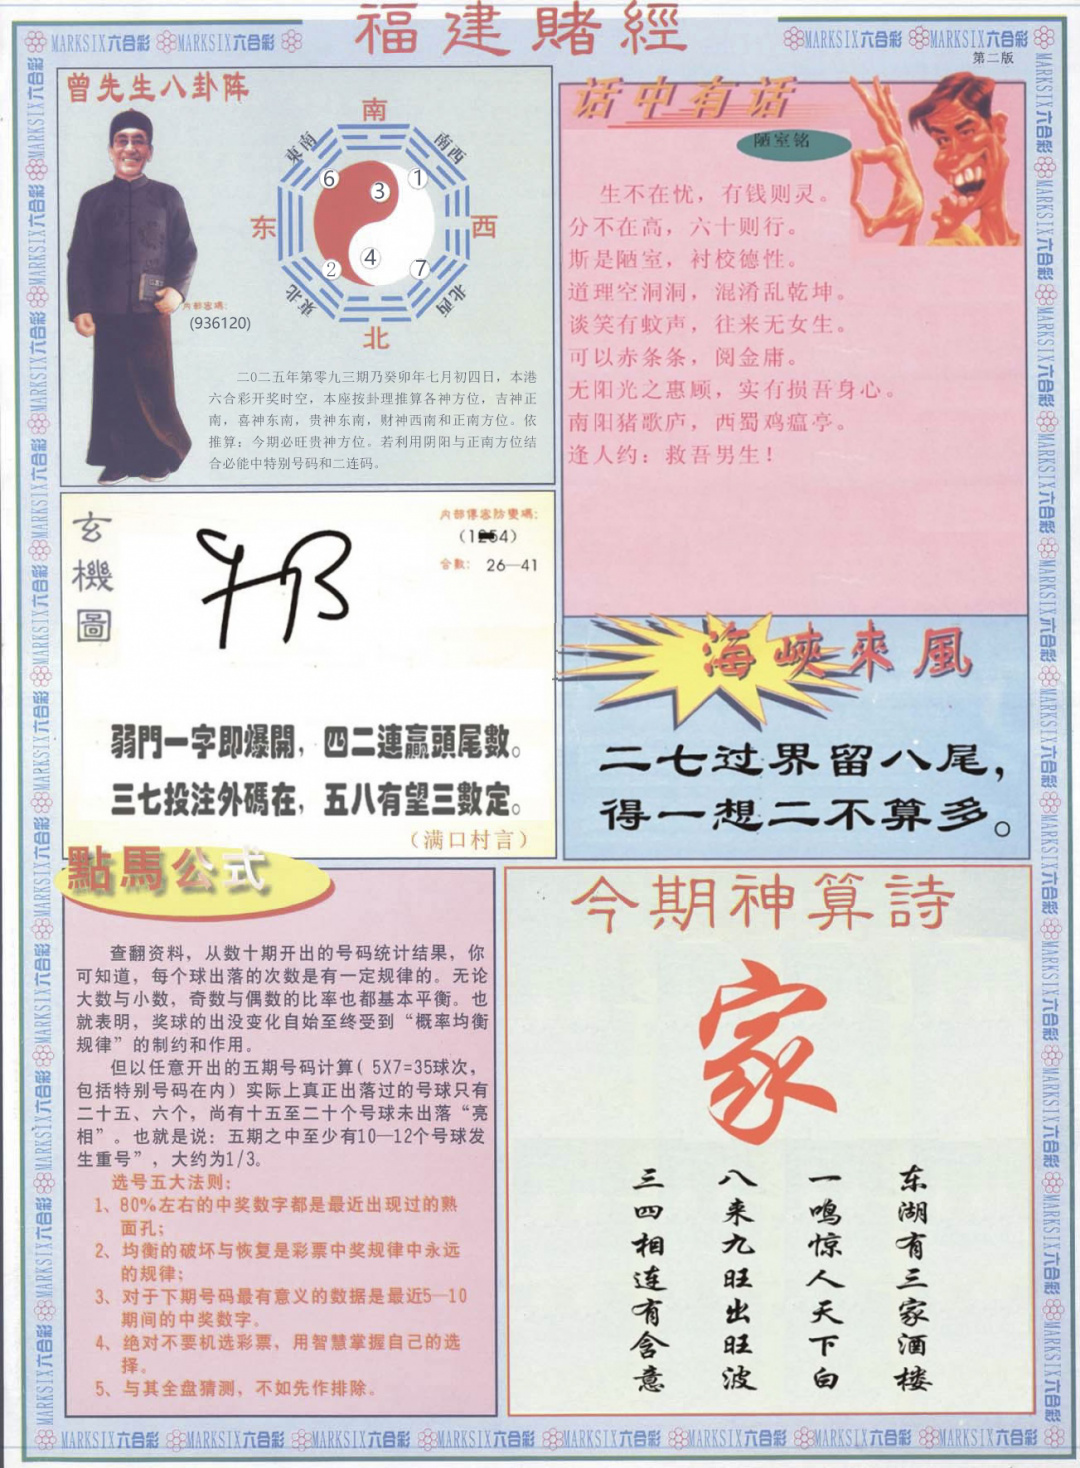 福建賭經
MARKSIX六合彩 MARKSIX六合彩
MARKSIX六合彩 MARKSIX六合彩
第二版
曾先生八卦阵
南
東南
南西
6
3
1
东
西
4
2
7
東北
北西
北
内部密碼:
(936120)
二0二五年第零九三期乃癸卯年七月初四日，本港
六合彩开奖时空，本座按卦理推算各神方位，吉神正
南，喜神东南，贵神东南，财神西南和正南方位。依
推算：今期必旺贵神方位。若利用阴阳与正南方位结
合必能中特别号码和二连码。
话中有话
陋室铭
生不在忧，有钱则灵。
分不在高，六十则行。
斯是陋室，衬校德性。
道理空洞洞，混淆乱乾坤。
谈笑有蚊声，往来无女生。
可以赤条条，阅金庸。
无阳光之惠顾，实有损吾身心。
南阳猪歌庐，西蜀鸡瘟亭。
逢人约：救吾男生！
玄機圖
内部傳密防變碼:
合數: 26—41
弱門一字即爆開，四二連贏頭尾數。
三七投注外碼在，五八有望三數定。
（满口村言）
海峽來風
二七过界留八尾，
得一想二不算多。
點馬公式
查翻资料，从数十期开出的号码统计结果，你
可知道，每个球出落的次数是有一定规律的。无论
大数与小数，奇数与偶数的比率也都基本平衡。也
就表明，奖球的出没变化自始至终受到“概率均衡
规律”的制约和作用。
但以任意开出的五期号码计算( 5X7=35球次，
包括特别号码在内) 实际上真正出落过的号球只有
二十五、六个，尚有十五至二十个号球未出落“亮
相”。也就是说：五期之中至少有10—12个号球发
生重号”，大约为1/3。
选号五大法则:
1、80%左右的中奖数字都是最近出现过的熟
面孔;
2、均衡的破坏与恢复是彩票中奖规律中永远
的规律;
3、对于下期号码最有意义的数据是最近5—10
期间的中奖数字。
4、绝对不要机选彩票，用智慧掌握自己的选
择。
5、与其全盘猜测，不如先作排除。
今期神算詩
家
东湖有三家酒楼
一鸣惊人天下白
八来九旺出旺波
三四相连有含意
MARKSIX六合彩 MARKSIX六合彩 MARKSIX六合彩 MARKSIX六合彩 MARKSIX六合彩 MARKSIX六合彩 MARKSIX六合彩 MARKSIX六合彩